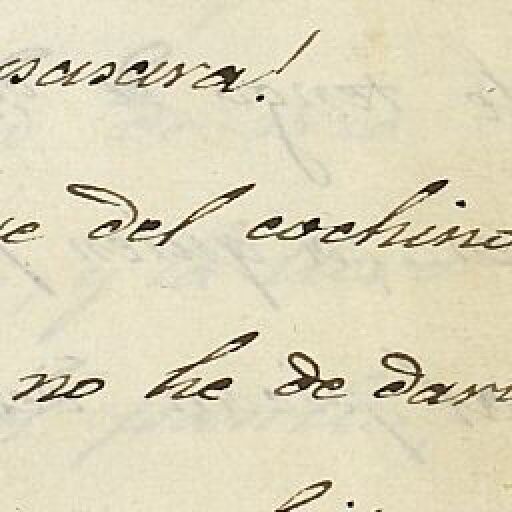 sasara!
e del cochino
no he de dar